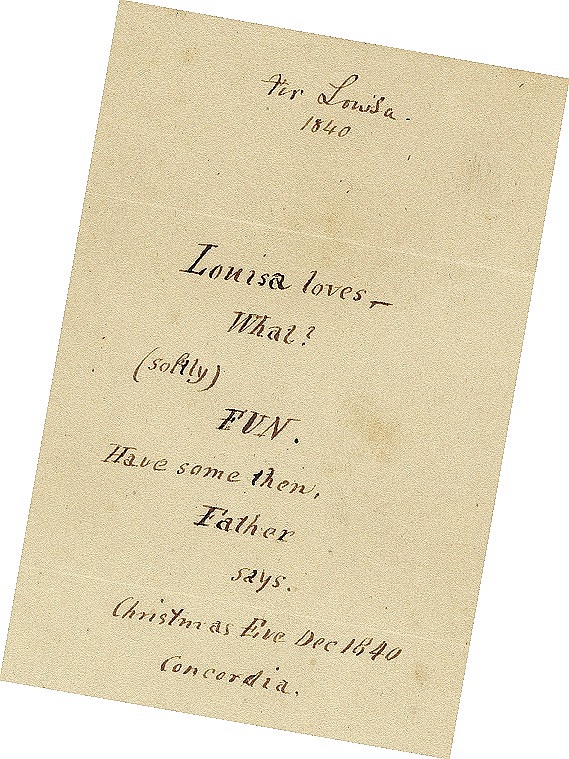 For Louisa.
1840
Louisa loves—
What?
(softly)
FUN.
Have some then,
Father
says.
Christmas Eve Dec 1840
Concordia.